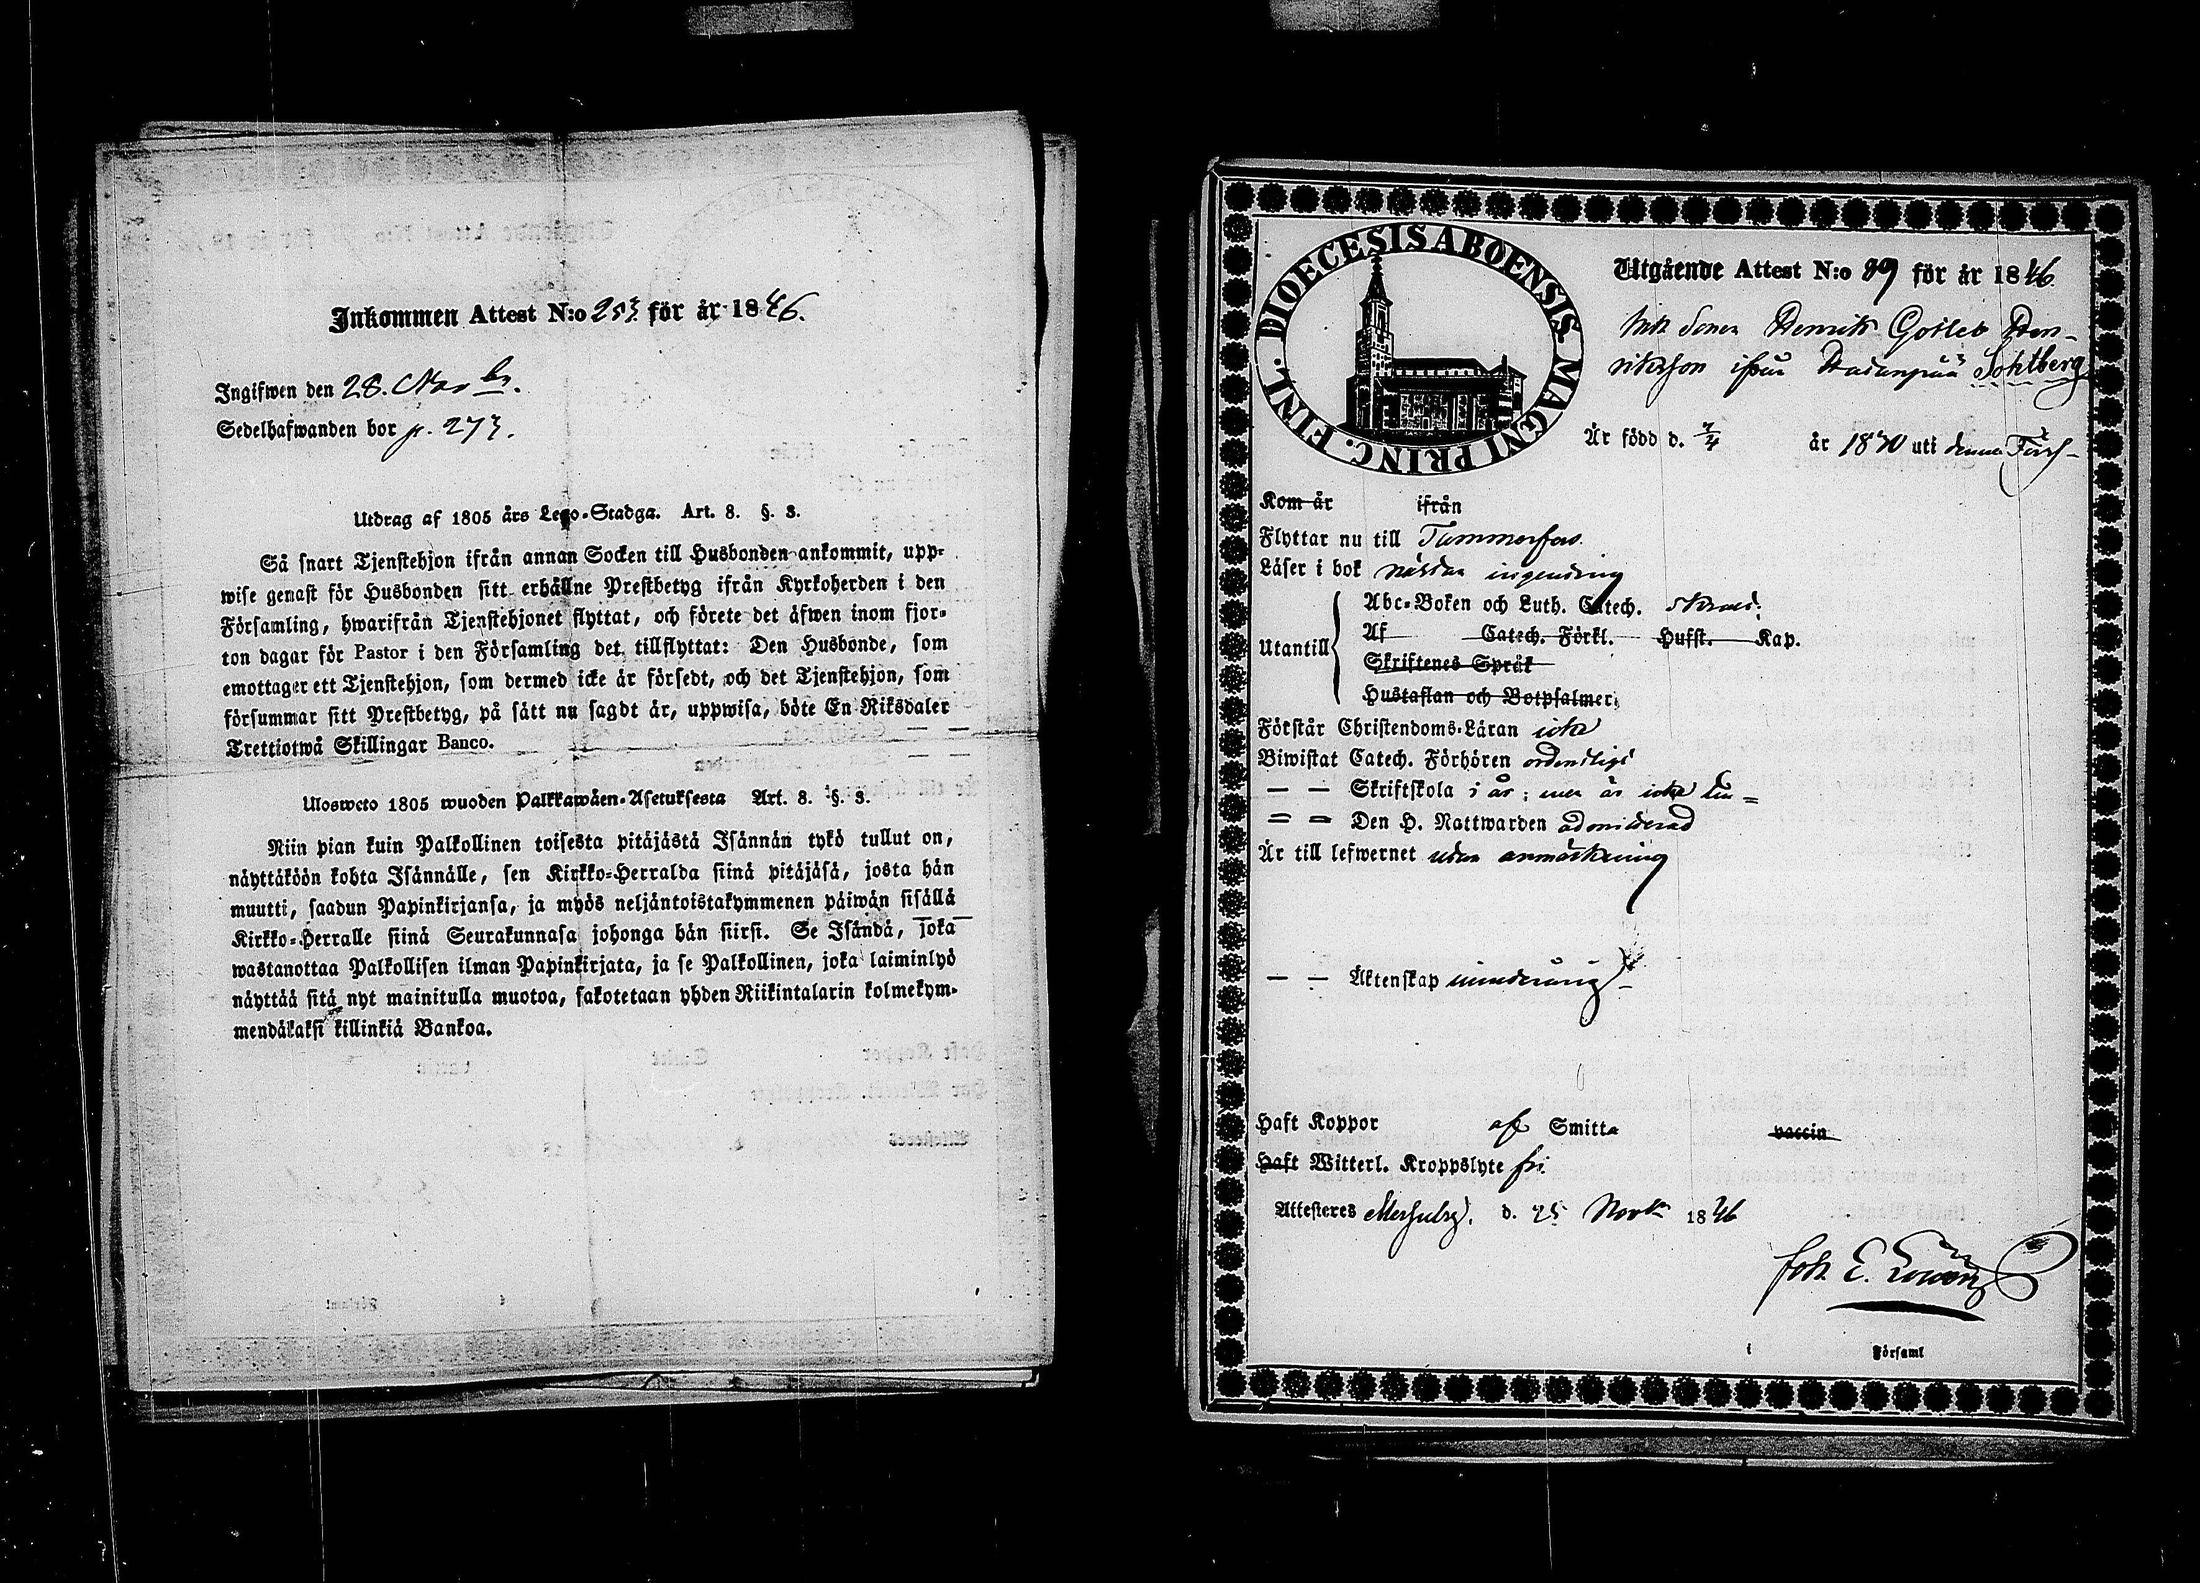 Inkommen Attest N:o 253 för år 1846.
Ingifwen den 28. Novbr.
Sedelhafwanden bor p. 273.
Utdrag af 1805 års Lego-Stadga. Art. 8. §. 3.
Så snart Tjenstehjon ifrån annan Socken till Husbonden ankommit, upp-
wise genast för Husbonden sitt erhållne Prestbetyg ifrån Kyrkoherden i den
Församling, hwarifrån Tjenstehjonet flyttat, och förete det äfwen inom fjor-
ton dagar för Pastor i den Församling det tillflyttat: Den Husbonde, som
emottager ett Tjenstehjon, som dermed icke är försedt, och det Tjenstehjon, som
försummar sitt Prestbetyg, på sätt nu sagdt är, uppwisa, böte En Riksdaler
Trettiotwå Skillingar Banco.
Ulosweto 1805 wuoden Palkkawäen-Asetuksesta Art. 8. §. 3.
Niin pian kuin Palkollinen toisesta pitäjästä Isännän tykö tullut on,
näyttäköön kohta Isännälle, sen Kirkko-Herralda siinä pitäjäsä, josta hän
muutti, saadun Papinkirjansa, ja myös neljäntoistakymmenen päiwän sisällä
Kirkko-Herralle siinä Seurakunnasa johonga hän siirsi. Se Isändä, joka
wastanottaa Palkollisen ilman Papinkirjata, ja se Palkollinen, joka laiminlyö
näyttää sitä nyt mainitulla muotoa, sakotetaan yhden Riikintalarin kolmekym-
mendäkaksi killinkiä Bankoa.
DIOECESIS ABOENSIS MAGNI PRINC. FINL.
Utgående Attest N:o 99 för år 1846
Sonen Henrik Gotleb Hen-
riksson ifrån Sohlberg
Är född d. 7/4 år 1830 uti denna Förs-
Kom år ifrån
Flyttar nu till Tammerfors.
Läser i bok nästan ingenting
Utantill
Abc-Boken och Luth. Catech.
Af Catech. Förkl. Husst. Kap.
Skriftenes Språk
Hustaflan och Botpsalmer.
Förstår Christendoms-Läran icke
Biwistat Catech. Förhören ordentligt
— — Skriftskola i år; men är icke än =
— — Den H. Nattwarden admitterad
Är till lefwernet utan anmärkning
— — Äktenskap minderårig
Haft Koppor af Smitta vaccin
Haft Witterl. Kroppslyte fri.
Attesteres d. 25 Novbr 1846
Joh. E.
i Församl